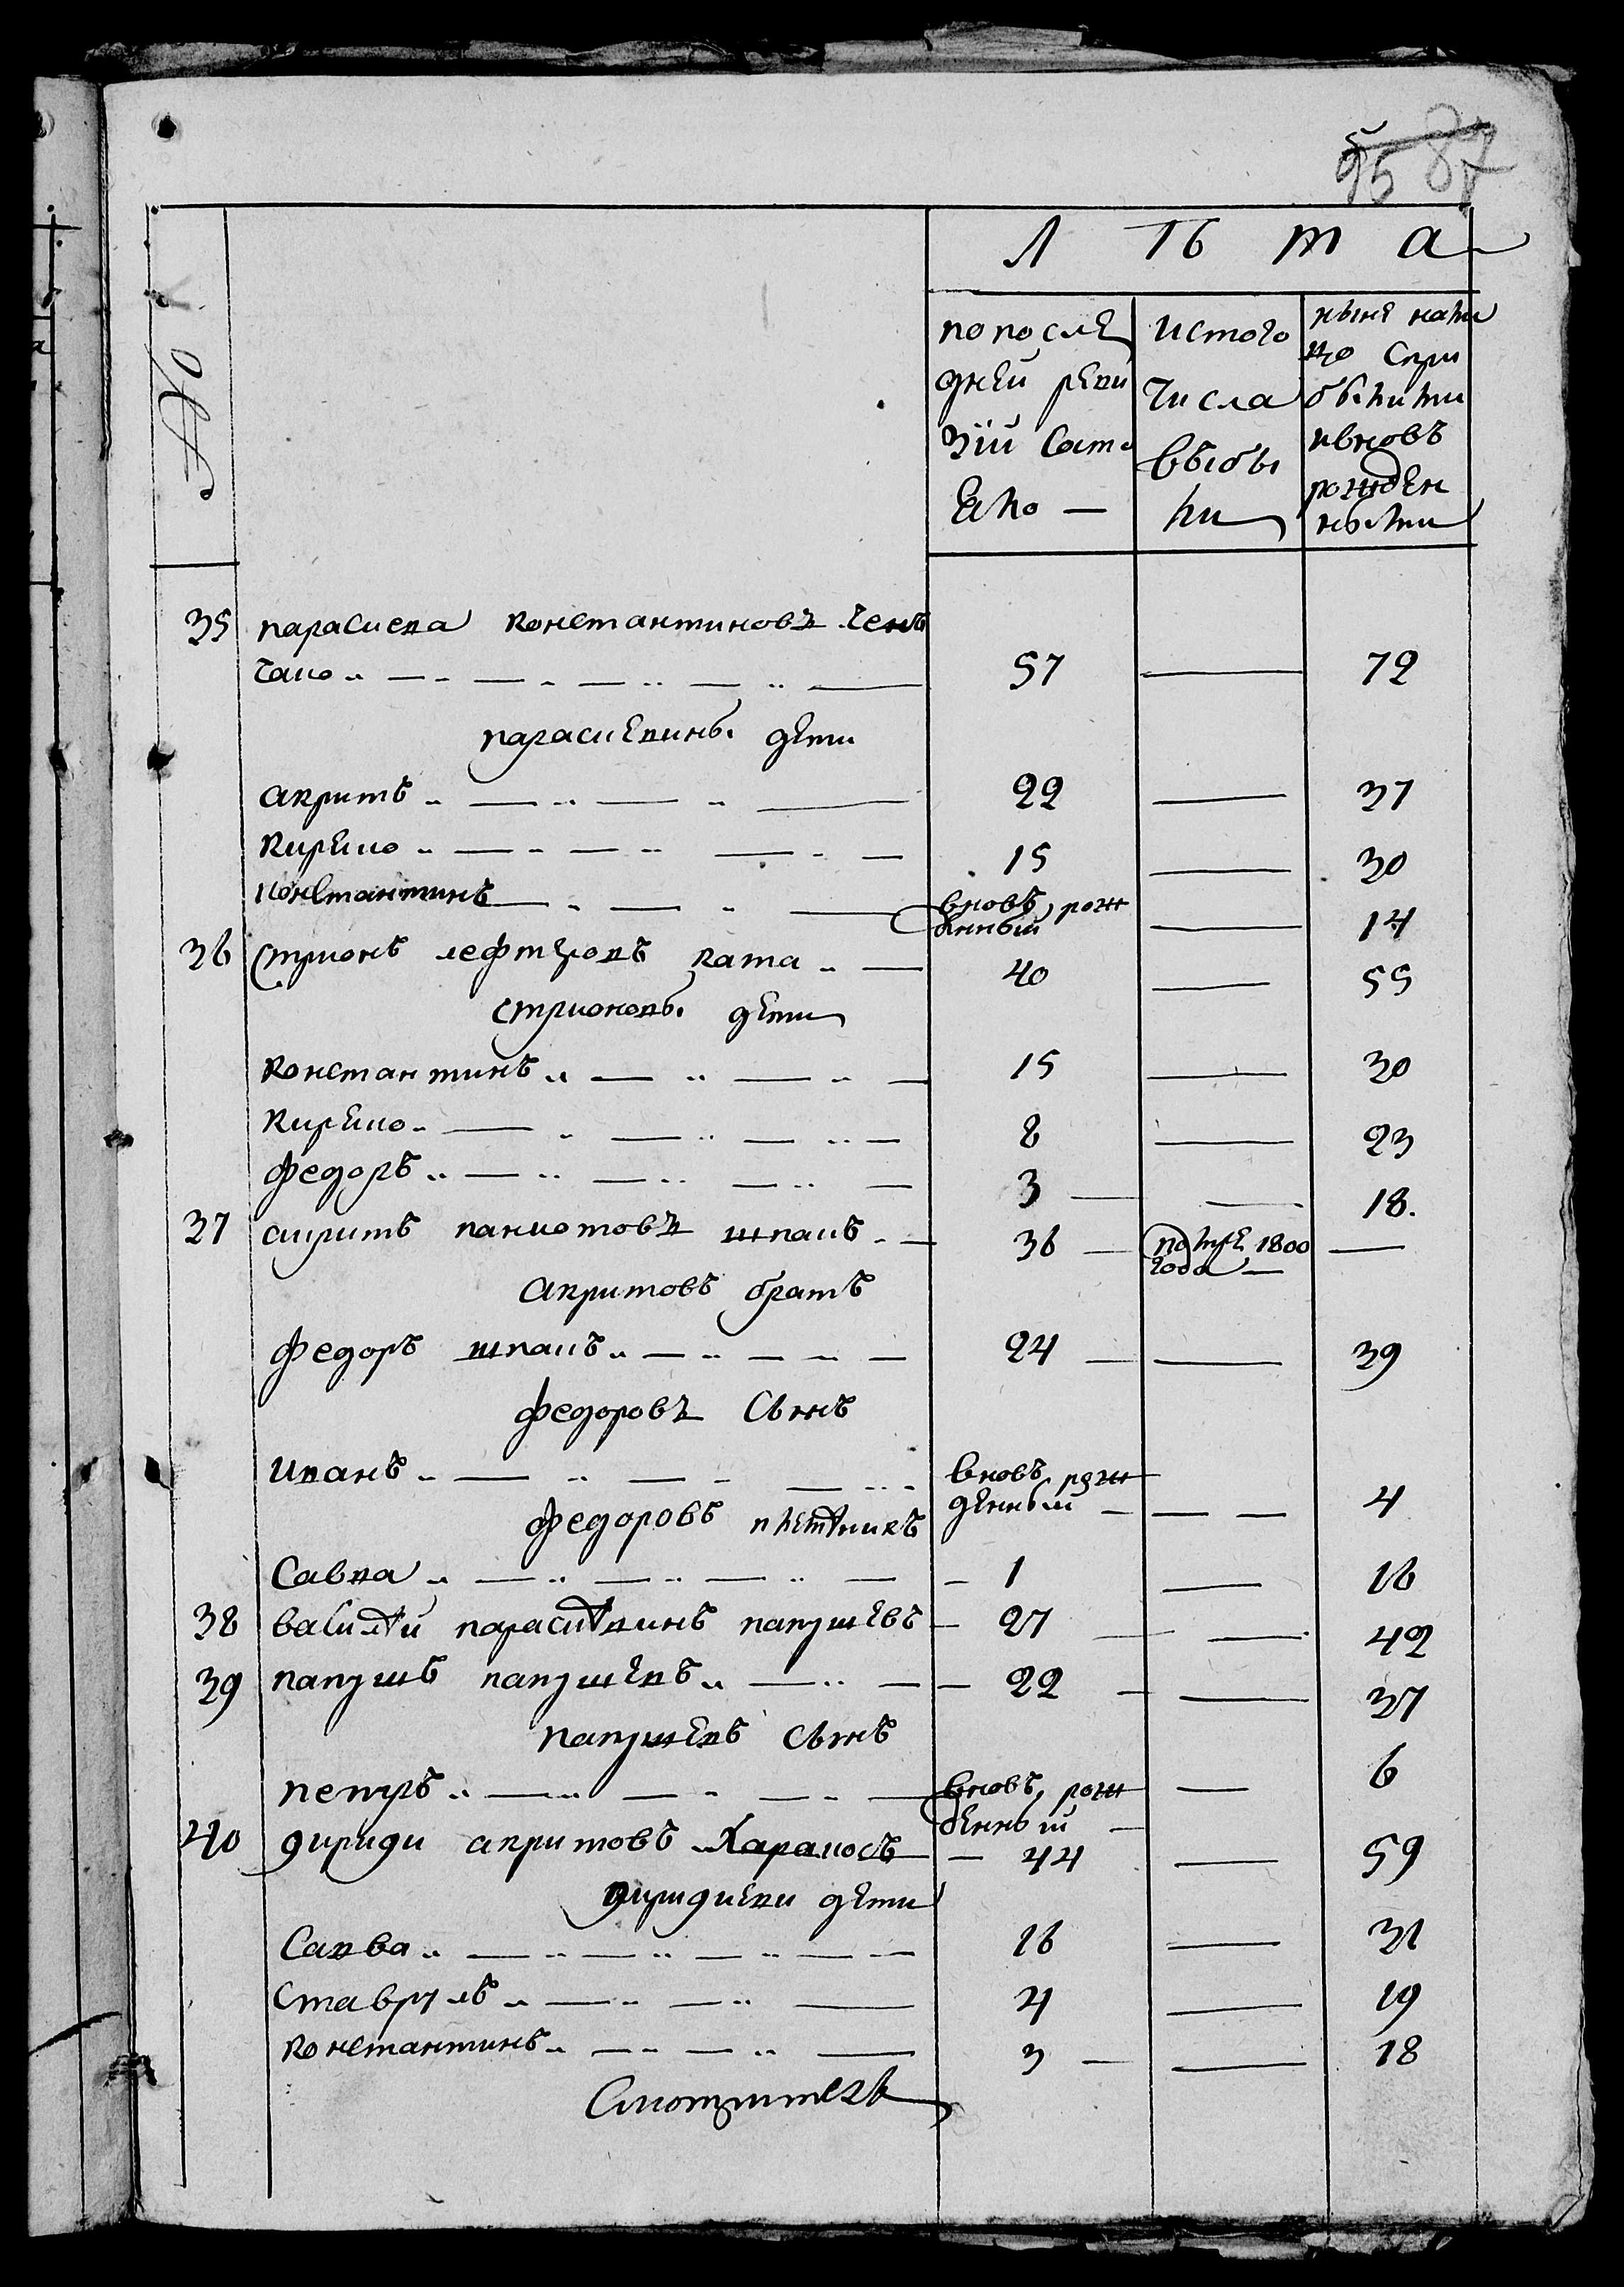 95 87
Лѣта
№
по после
дней реви
зіи сост.
ело —
ис того
числа
выбы
ли
ныне нали
цо с при
былыми
и вновь
рожден
ными
35 параскева константиновъ чен
чано 57 — 72
параскевины дети
акритъ 22 — 37
кирѣко 15 — 30
константинъ вновь рож
денный — 14
36 стрионъ лефтеровъ ката 40 — 55
стрионовы дети
константинъ 15 — 30
кирѣко 8 — 23
федоръ 3 — 18.
37 акритъ панаiотовъ шпакъ 36 помре 1800
года —
акритовъ братъ
федоръ шпакъ 24 — 39
федоровъ сынъ
иванъ вновь рож
денный — 4
федоровъ племянникъ
савва 1 — 16
38 василѣй параскѣвинъ папушевъ 27 — 42
39 папушъ папушевъ 22 — 37
папушевъ сынъ
петръ вновь рож
денный — 6
40 дириди акритовъ Харахосъ 44 — 59
диридиеви дети
савва 16 — 31
ставрулъ 4 — 19
константинъ 3 — 18
Смотритель